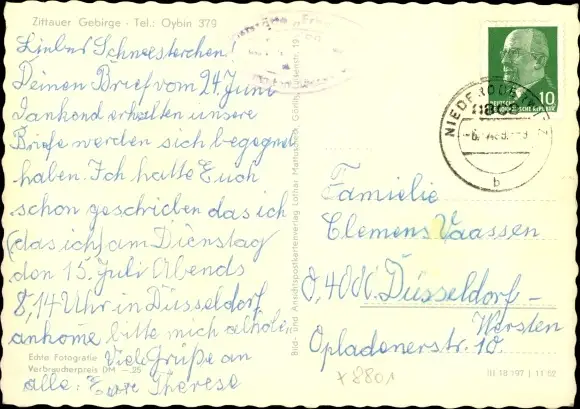 Zittauer Gebirge · Tel.: Oybin 379
Liebes Schwesterchen!
Deinen Brief vom 24. Juni
dankend erhalten unsere
Briefe werden sich begegnet
haben. Ich hatte Euch
schon geschrieben das ich
(das ich) am Dienstag
den 15. Juli Abends
8,14 Uhr in Düsseldorf
ankome bitte mich abholen
Viele Grüße an
alle: Eure Therese
Echte Fotografie
Verbraucherpreis DM —,25
Bild- und Ansichtspostkartenverlag Lothar
DEUTSCHE
DEMOKRATISCHE REPUBLIK
10
b
Familie
Clemens Vaassen
Düsseldorf-
Wersten
Opladenerstr. 10.
x 8801
III 18 197 | 11 62